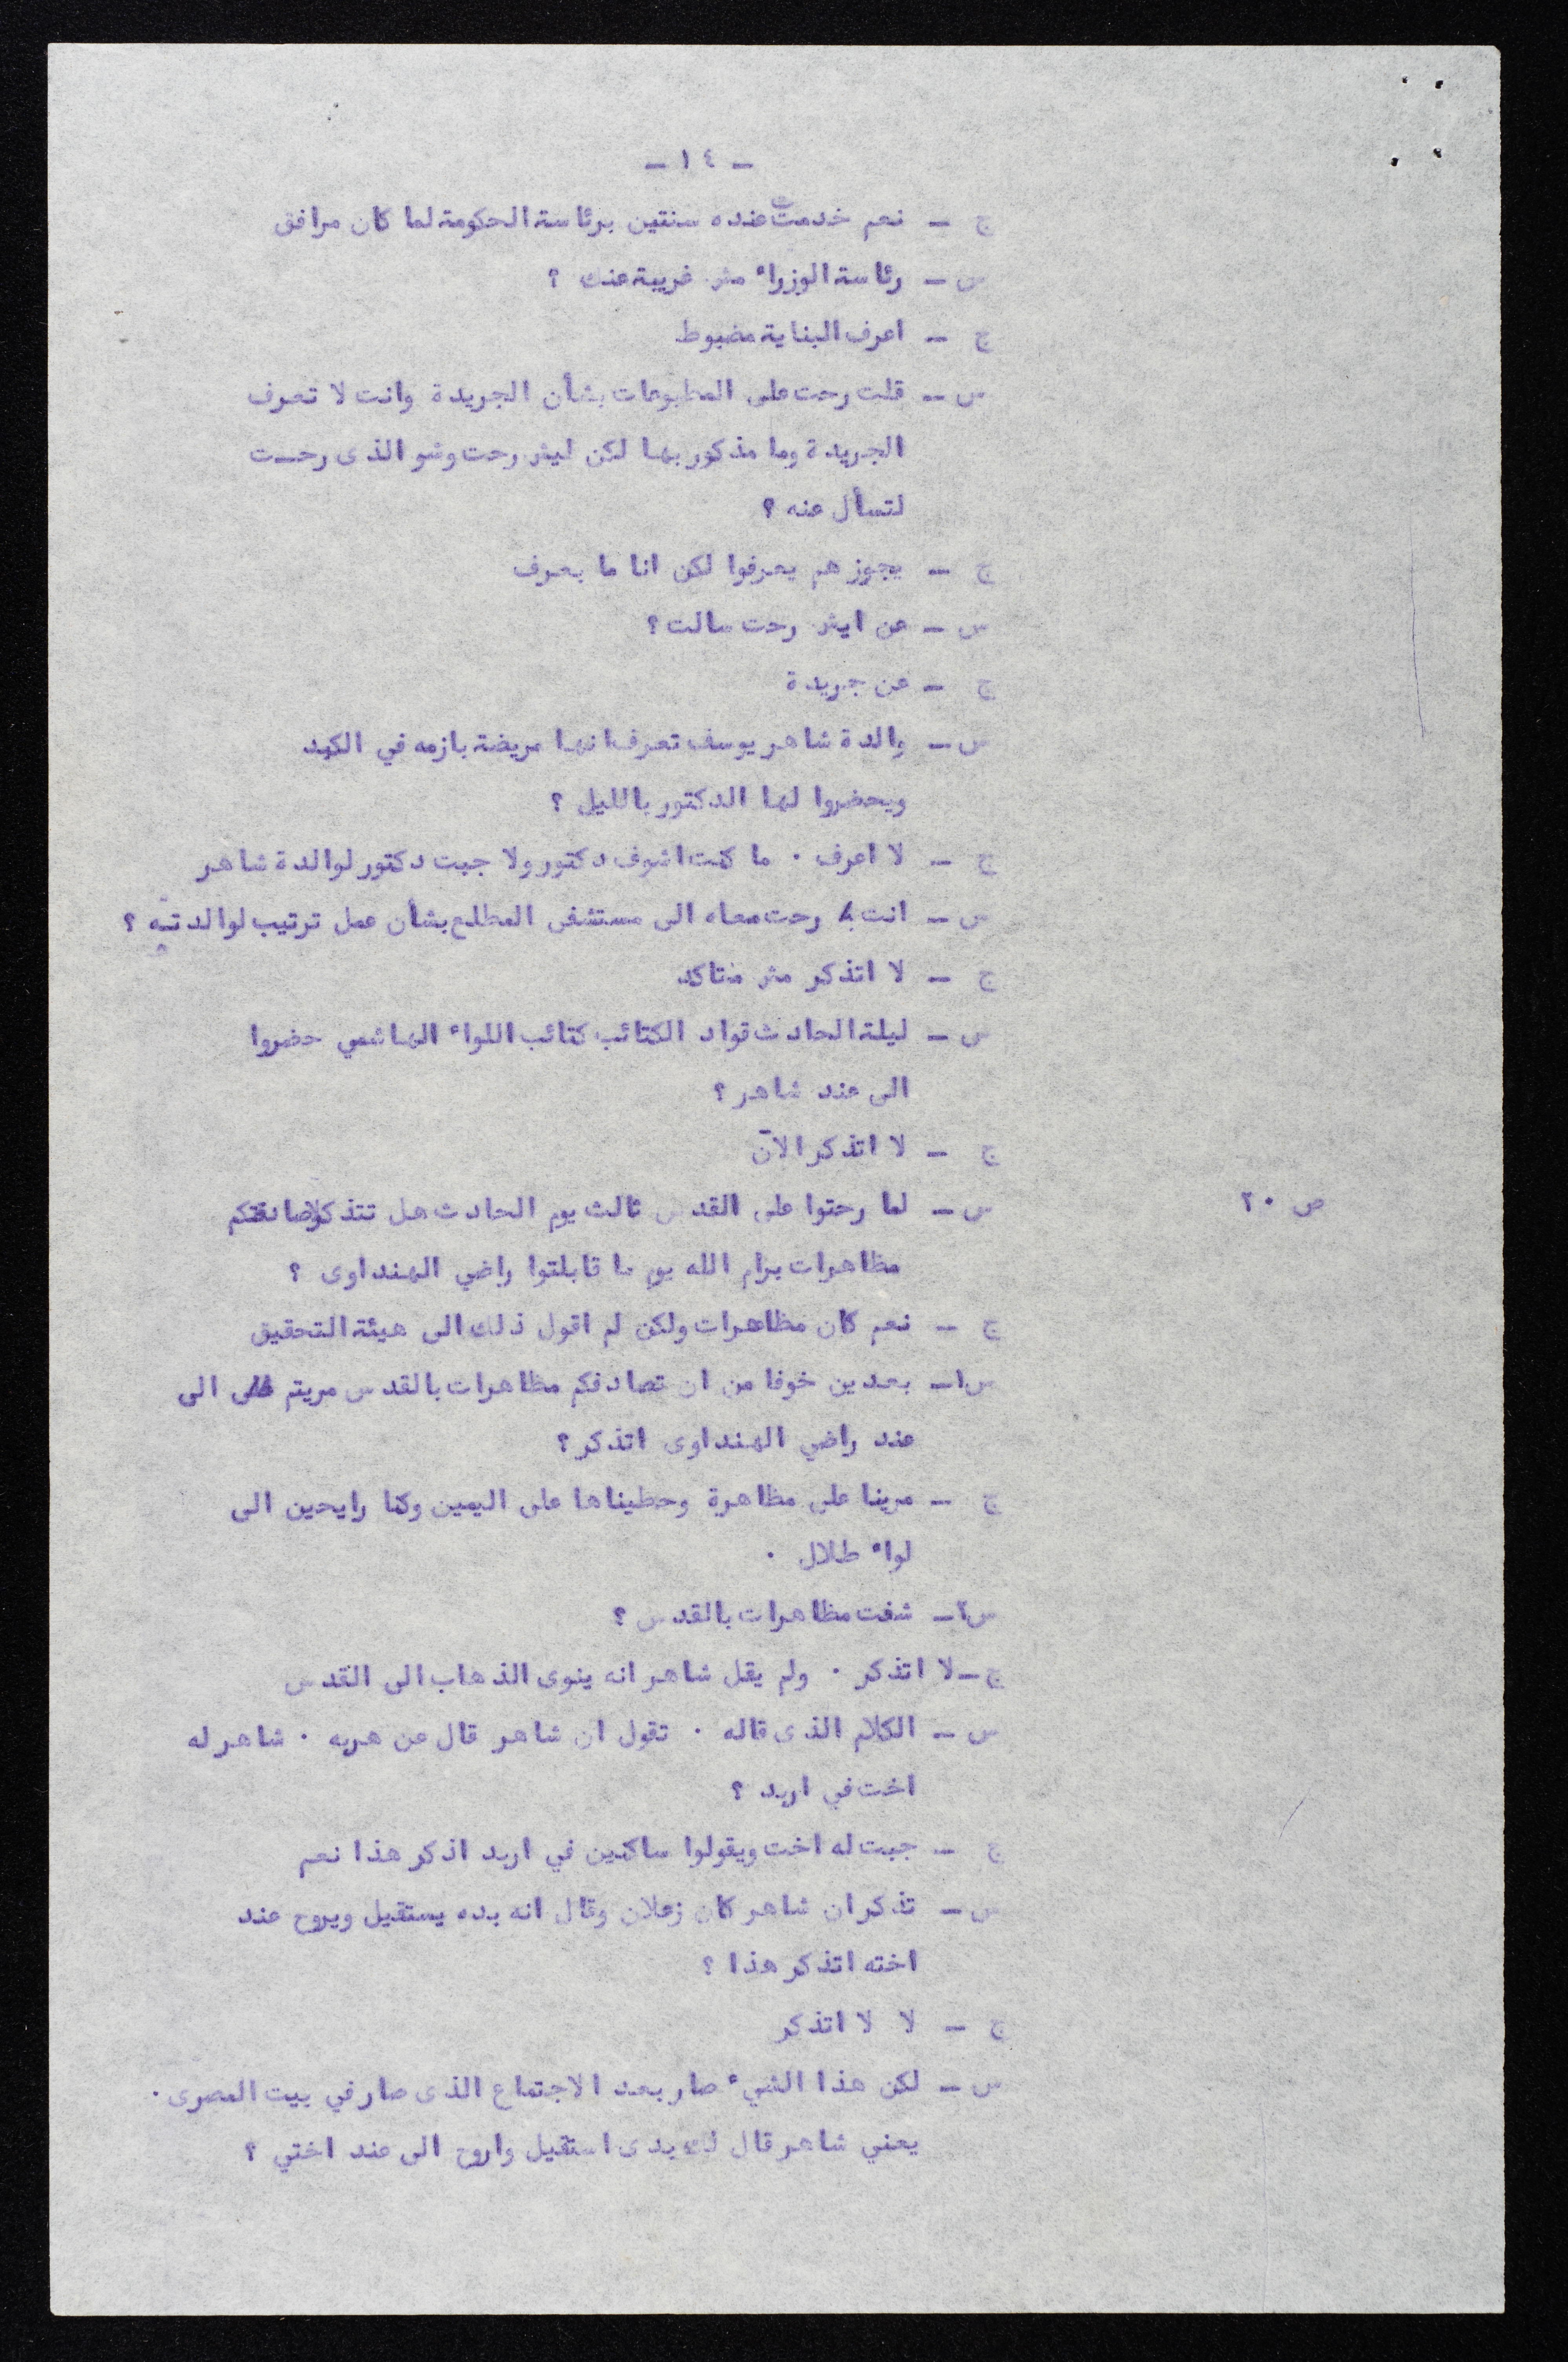 - ١٤ -
ج - نعم خدمت عنده سنتين برئاسة الحكومة لما كان مرافق
س - رئاسة الوزراء مش غريبة عنك ؟
ج - اعرف البناية مضبوط
س - قلت رحت على المطبوعات بشأن الجريدة وانت لا تعرف
الجريدة وما مذكور بها لكن ليش رحت وشو الذى رحت
لتسأل عنه ؟
ج - يجوز هم يعرفوا لكن انا ما بعرف
س - عن ايش رحت سالت ؟
ج - عن جريدة
س - والدة شاهر يوسف تعرف انها مريضة بازمه في الكبد
ويحضروا لها الدكتور بالليل ؟
ج - لا اعرف . ما كنت اشوف دكتور ولا جبت دكتور لوالدة شاهر
س - انت رحت معاه الى مستشفى المطلع بشأن عمل ترتيب لوالدتيه ؟
ج - لا اتذكر مش متاكد
س - ليلة الحادث قواد الكتائب كتائب اللواء الهاشمي حضروا
الى عند شاهر ؟
ج - لا اتذكر الآن
ص ٢٠ س - لما رحتوا على القدس ثالث يوم الحادث هل تتذكر صادفتكم
مظاهرات برام الله يوم ما قابلتوا راضي الهنداوى ؟
ج - نعم كان مظاهرات ولكن لم اقول ذلك الى هيئة التحقيق
س١- بعدين خوفا من ان تصادفكم مظاهرات بالقدس مريتم الى
عند راضي الهنداوى اتذكر ؟
ج - مرينا على مظاهرة وحطيناها على اليمين وكنا رايحين الى
لواء طلال .
س٢- شفت مظاهرات بالقدس ؟
ج - لا اتذكر . ولم يقل شاهر انه ينوى الذهاب الى القدس
س - الكلام الذى قاله . تقول ان شاهر قال عن هربه . شاهر له
اخت في اربد ؟
ج - جبت له اخت ويقولوا ساكنين في اربد اذكر هذا نعم
س - تذكر ان شاهر كان زعلان وقال انه بده يستقيل ويروح عند
اخته اتذكر هذا ؟
ج - لا لا اتذكر
س - لكن هذا الشيء صار بعد الاجتماع الذى صار في بيت المصرى .
يعني شاهر قال لك بدى استقيل واروح الى عند اختي ؟